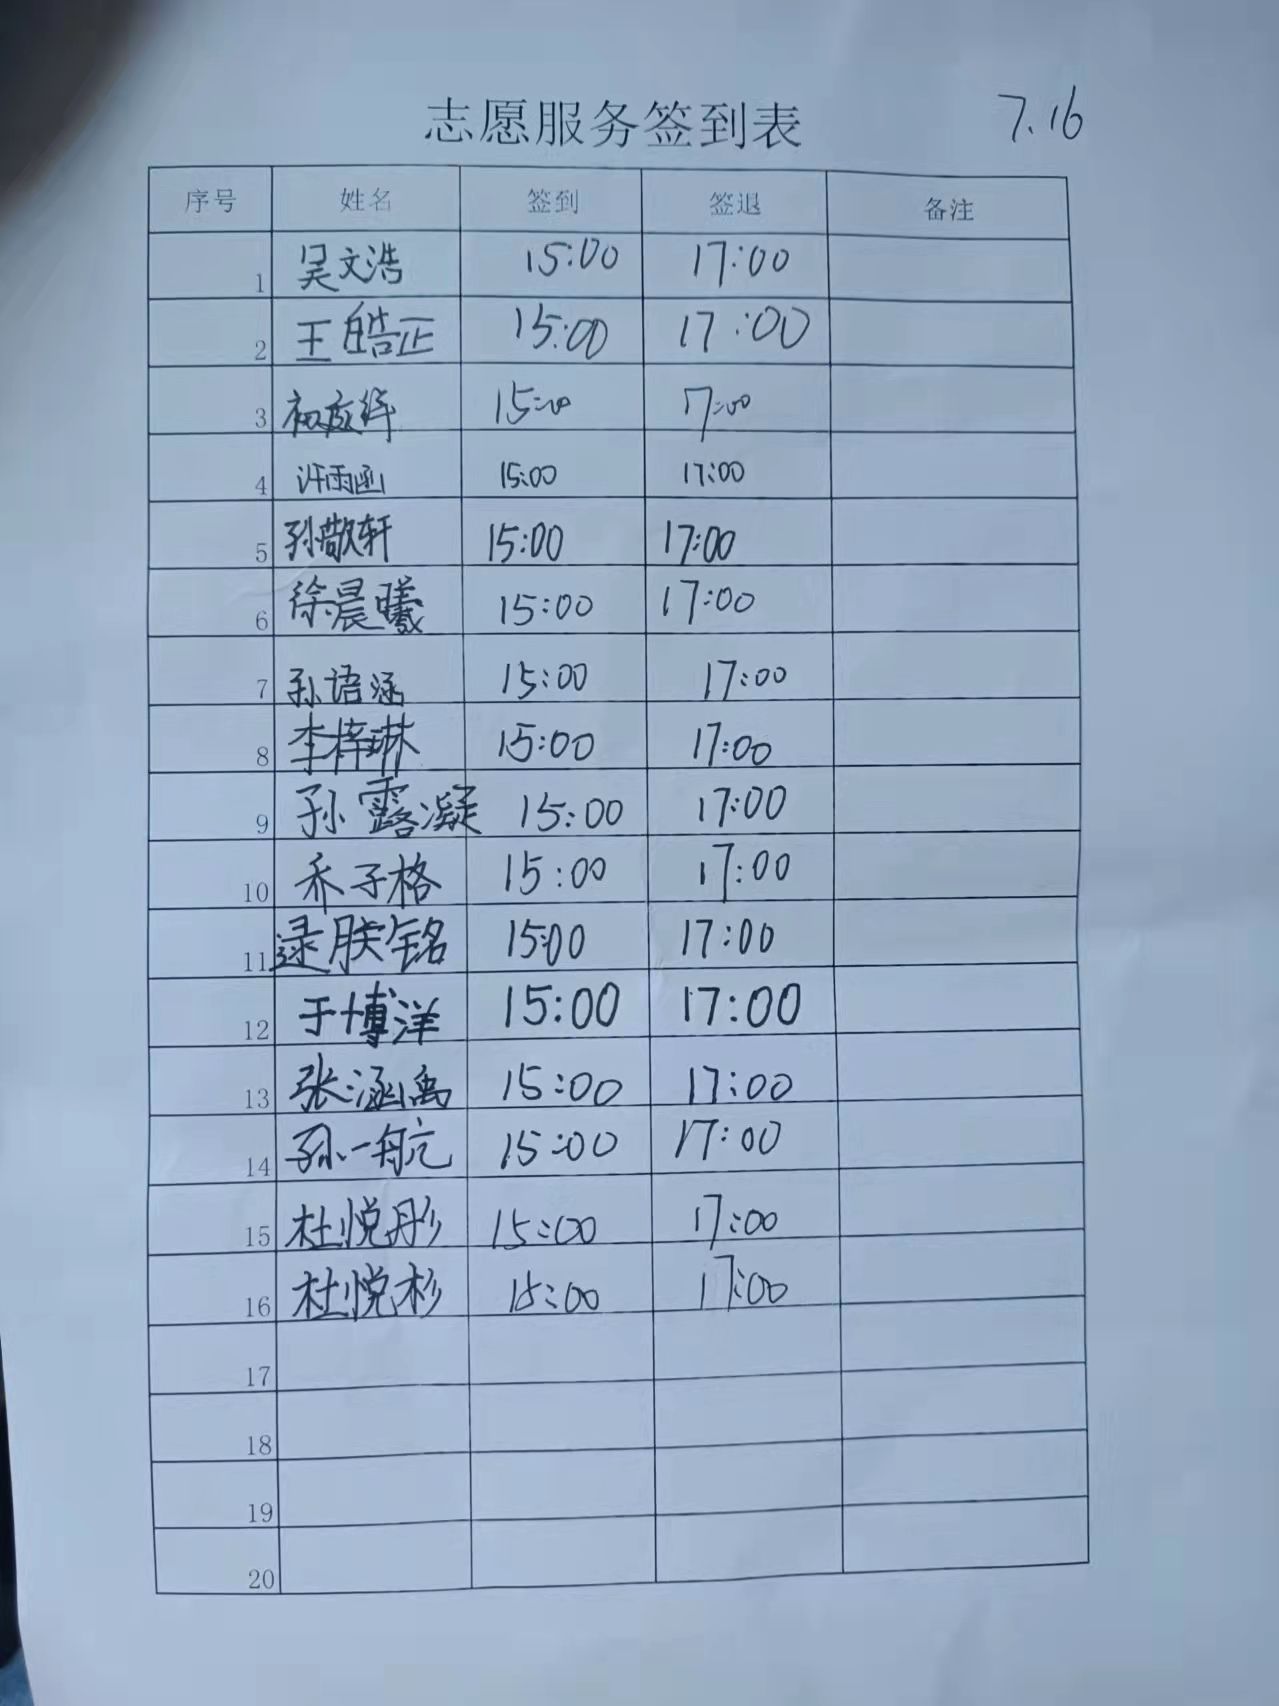 志愿服务签到表 7.16
序号 姓名 签到 签退 备注
1 吴文浩 15:00 17:00
2 王皓正 15:00 17:00
3 15:00 17:00
4 许雨函 15:00 17:00
5 孙敬轩 15:00 17:00
6 徐晨曦 15:00 17:00
7 孙语涵 15:00 17:00
8 李梓琳 15:00 17:00
9 孙露凝 15:00 17:00
10 乔子格 15:00 17:00
11 逯朕铭 15:00 17:00
12 于博洋 15:00 17:00
13 张涵禹 15:00 17:00
14 孙一航 15:00 17:00
15 杜悦彤 15:00 17:00
16 杜悦杉 15:00 17:00
17
18
19
20